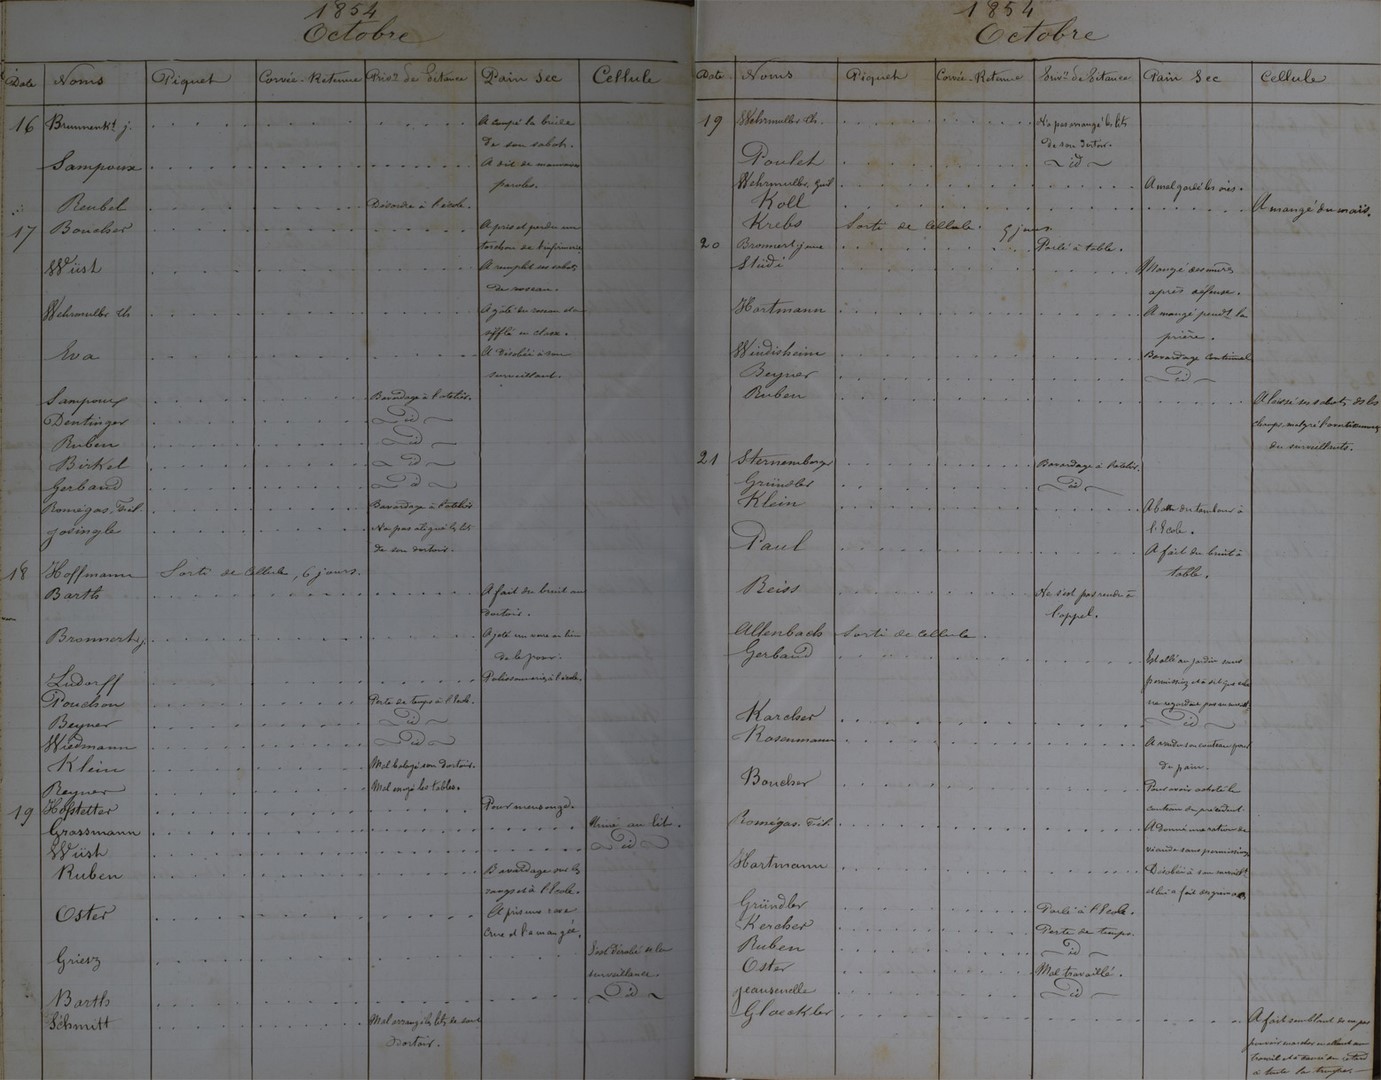 1854
Octobre
Date Noms Piquet Corvée-Retenue Priv.on de Pitance Pain Sec Cellule
16 Brunnenkt j. A coupé la bride
de son sabot.
Sampoux A dit de mauvaises
paroles.
Reubel Désordre à l'école.
17 Boucher A pris et perdu un
torchon de l'infirmerie
Wüst A rempli ses sabots
de roseau.
Wehrmuller Ch. A jeté du roseau et a
sifflé en classe.
Eva A désobéi à son
surveillant.
Sampoux Bavardage à l'atelier.
Dentinger id
Ruben id
Birkel id
Gerbaud id
Romégas. Fél. Bavardage à l'atelier
Josingle N'a pas aligné les lits
de son dortoir.
18 Hoffmann Sorti de Cellule, 6 jours.
Barth A fait du bruit au
dortoir.
Bronnert j. A jeté un
de la
Ludorff Polissonnerie à l'école.
Pouchon Perte de temps à l'école.
Beyner id
Wiedmann id
Klein Mal balayé son dortoir.
Reyner Mal rangé les tables.
19 Hofstetter Pour mensonge.
Grossmann Uriné au lit.
Wüst id
Ruben Bavardage sur les
rangs et à l'école.
Oster A pris une rave
crue et l'a mangée.
Griesz S'est dérobé de la
surveillance.
Barth id
Schmitt Mal arrangé les lits de son
dortoir.
1854
Octobre
Date Noms Piquet Corvée-Retenue Priv.on de Pitance Pain Sec Cellule
19 Wehrmuller Ch. N'a pas arrangé les lits
de son dortoir.
Poulet id
Wehrmuller, Gust A mal gardé les oies.
Koll A mangé du maïs.
Krebs Sorti de Cellule. 5 jours
20 Bronnert jeune Parlé à table.
Studi Mangé des mûres
après défense.
Hartmann A mangé pendt la
prière.
Windisheim Bavardage continuel
Beyner id
Ruben A laissé ses sabots ds les
champs malgré l'avertissement
du surveillants.
21 Sternemberger Bavardage à l'atelier.
Gründler id
Klein A battu du tambour à
l'école.
Paul A fait du bruit à
table.
Beiss Ne s'est pas rendu à
l'appel.
Altenbach Sorti de cellule.
Gerbaud Est allé au jardin sans
permission et a dit que cela
ne regardait pas un surveillt.
Karcher id
Rosenmann A vendu son couteau pour
du pain.
Boucher Pour avoir acheté le
couteau du précédent.
Romégas. Fél. A donné une ration de
viande sans permission
Hartmann Désobéi à son surveillt
et lui a fait des grimaces
Gründler Parlé à l'école.
Kercher Perte de temps.
Ruben id
Oster Mal travaillé.
Jeanselle id
Gloeckler A fait semblant de ne pas
pouvoir marcher en allant au
travail et a causé un retard
à toute la troupe.